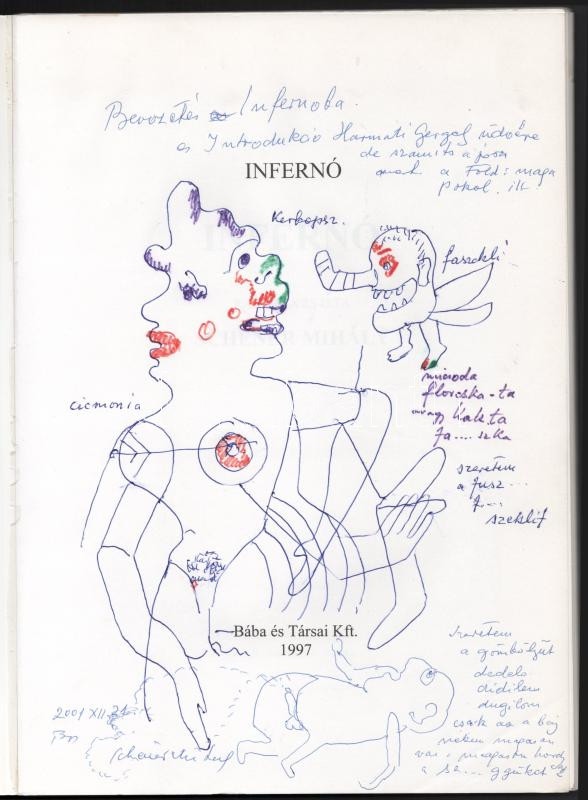 Bevezetés Infernoba.
és Introdukció Harmati Gergely üdvére
de számítás
mert a Föld: maga
pokol. itt
INFERNÓ
Kerkopsz.
faszekli
cicmonia
flórcska-ta
vagy kakta
fa....szka
szeretem
a fusz...
f....
szeklit
Bába és Társai Kft.
1997
szeretem
a gömbölyűt
dedels
didilem
dugilom
csak az a baj
nékem magasan
van s magasan hordja
a se... ggüket
2001 XII 21
Bp
Schéner Mihály